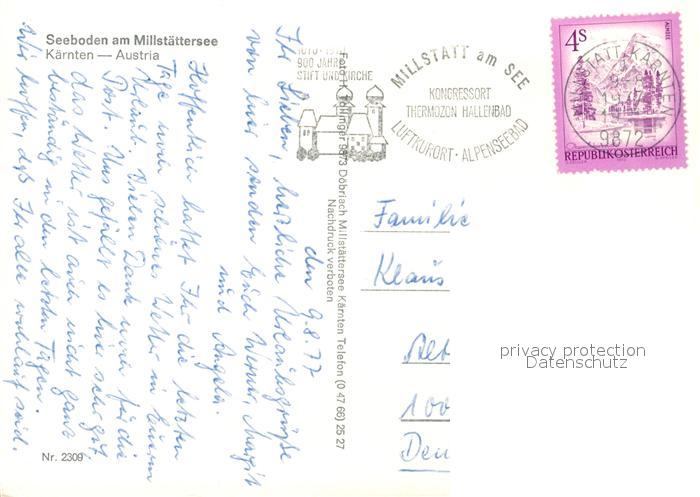 Seeboden am Millstättersee
Kärnten — Austria
1070-1970
900 JAHRE
STIFT UND KIRCHE
MILLSTATT am SEE
KONGRESSORT
THERMOZON HALLENBAD
LUFTKURORT · ALPENSEEBAD
4S
ALMSEE
MILLSTATT, KÄRNTEN
9872
REPUBLIK ÖSTERREICH
den 9.8.77
Ihr Lieben, herzliche Urlaubsgrüße
von hier senden Euch Werner, Margit
und Angela.
Hoffentlich hattet Ihr die letzten
Tage noch schönes Wetter in Eurem
Urlaub. Vielen Dank noch für die
Post. Uns gefällt es hier sehr gut,
das Wetter ist auch nicht ganz
beständig in den letzten Tagen.
Wir hoffen, daß Ihr alle wohlauf seid.
Nr. 2309
Foto Göllinger 9873 Döbriach Millstättersee Kärnten Telefon (0 47 66) 25 27
Nachdruck verboten
Familie
Klaus
Alt
100
Deu
privacy protection
Datenschutz